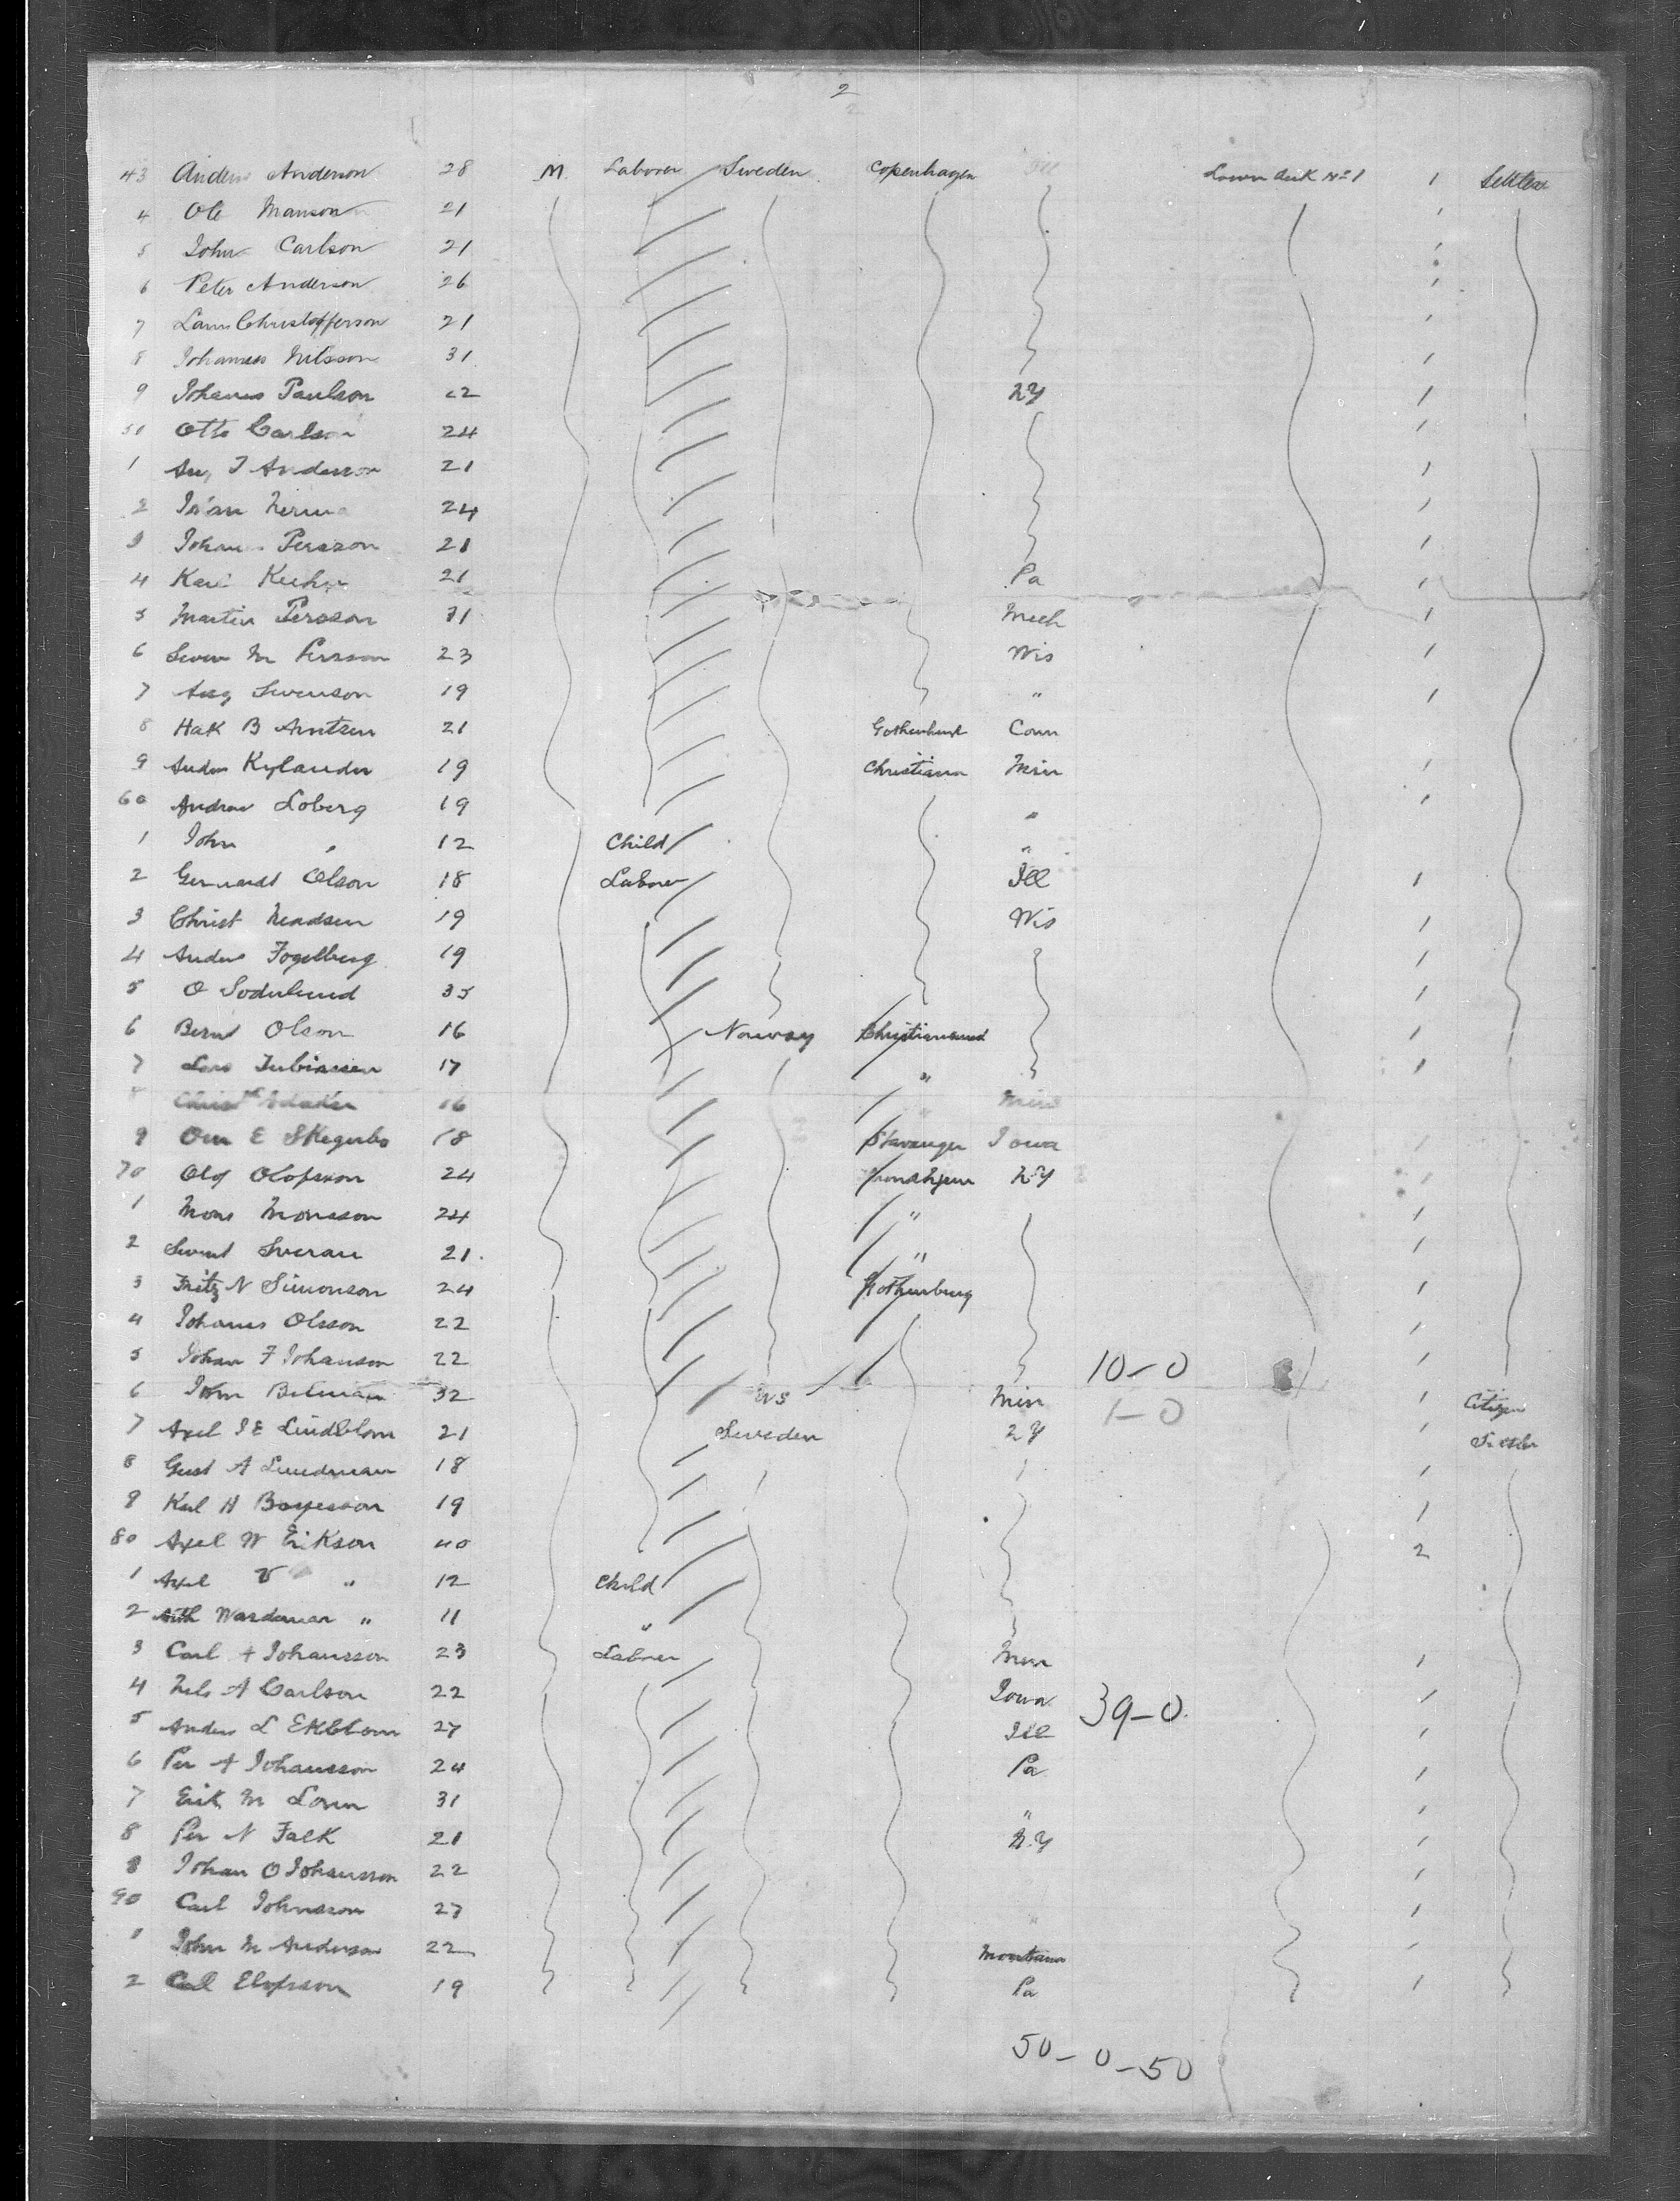 2
43 Anders Anderson 28 M. Laborer Sweden Copenhagen Ill Lower deck No 1 1 Settler
4 Ole Manson 21
5 John Carlson 21
6 Peter Anderson 26
7 Lars Christofferson 21
8 Johannes Nilsson 31
9 Johanes Paulson 22 NY
50 Otto Carlson 24
1 Aug J Anderson 21
2 24
3 Johan Persson 21
4 Karl 21 Pa
5 Martin Persson 31 Mich
6 Swen M Persson 23 Wis
7 Aug Swenson 19 "
8 Hak B Arntzen 21 Conn
9 Anders Kylander 19 Christiana Min
60 Andrew Loberg 19 "
1 John " 12 Child "
2 Olson 18 Laborer Ill
3 Christ Madsen 19 Wis
4 Anders Fogelberg 19
5 O Soderlund 35
6 Bernt Olson 16 Norway Christiansund
7 Lars 17 "
8 16
9 E 18 Stavanger Iowa
70 Olof Olofsson 24 Trondhjem NY
1 Mons Monsson 24 "
2 21 "
3 Fritz N Simonson 24 Gothenburg
4 Johanes Olsson 22
5 Johan F Johanson 22 10-0
6 John 32 US Min 1-0 1 Citizen
7 Axel J E Lindblom 21 Sweden NY 1 Settler
8 Gust A Lundman 18
9 Karl H 19
80 Axel W Erikson 40 2
1 Axel V " 12 Child
2 " 11 "
3 Carl A Johansson 23 Laborer
4 Nels A Carlson 22 Iowa 39-0
5 Anders L Ekblom 27 Ill
6 Per A Johansson 24 Pa
7 Erik M 31 "
8 Per N Falk 21 N.Y
9 Johan O Johansson 22
90 Carl Johnsson 27 "
1 John M Anderson 22 Montana
2 Carl Elofsson 19 Pa
50-0-50